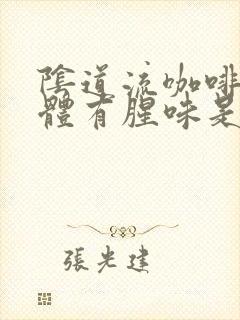 陰道流咖啡
體有腥味是
張光建